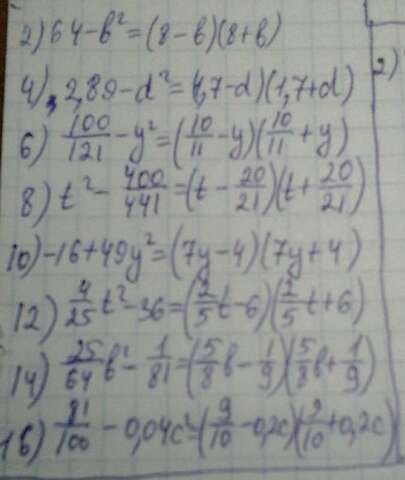 2) 64-b²=(8-b)(8+b)
4) 2,89-d²=(1,7-d)(1,7+d)
6) 100/121-y²=(10/11-y)(10/11+y)
8) t²-400/441=(t-20/21)(t+20/21)
10) -16+49y²=(7y-4)(7y+4)
12) 4/25t²-36=(2/5t-6)(2/5t+6)
14) 25/64b²-1/81=(5/8b-1/9)(5/8b+1/9)
16) 81/100-0,04c²=(9/10-0,2c)(9/10+0,2c)
2)